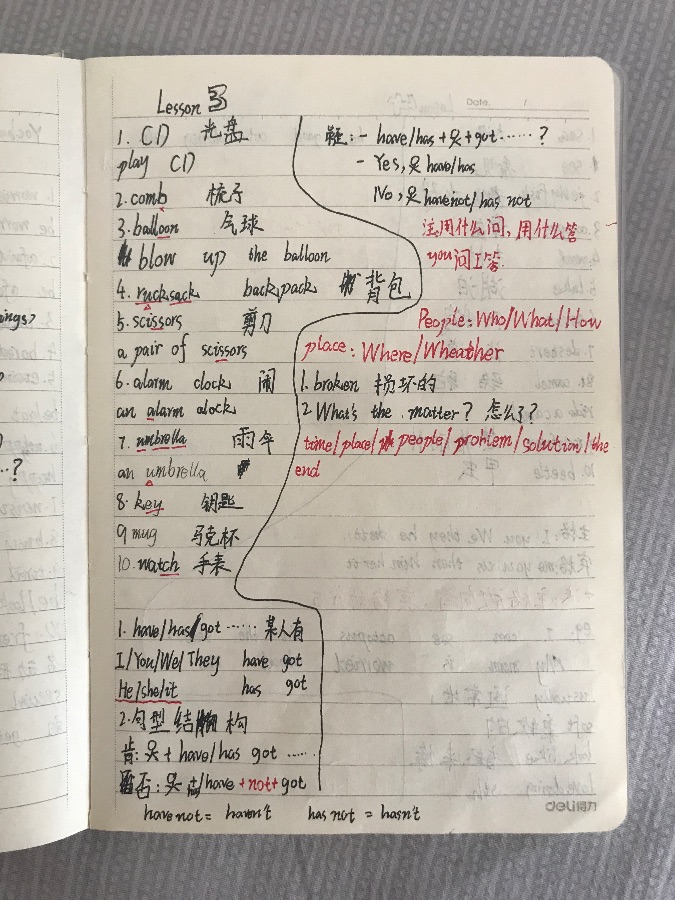 Lesson 3
Date. /
1. CD 光盘
play CD
2. comb 梳子
3. balloon 气球
blow up the balloon
4. rucksack backpack 背包
5. scissors 剪刀
a pair of scissors
6. alarm clock 闹
an alarm alock
7. umbrella 雨伞
an umbrella
8. key 钥匙
9 mug 马克杯
10. watch 手表
1. have/has got ...... 某人有
I/You/We/They have got
He/she/it has got
2. 句型结构
肯: 只 + have/has got ......
否: 只 + /have +not+ got
have not = haven't has not = hasn't
: - have/has + 只 + got ...... ?
- Yes, 只 have/has
No, 只 have not/has not
注用什么问, 用什么答
you问I答.
People: Who/What/How
place: Where/Wheather
1. broken 损坏的
2 What's the matter? 怎么了?
time/place/people/problem/solution/the
end
ings?
..?
deli得力